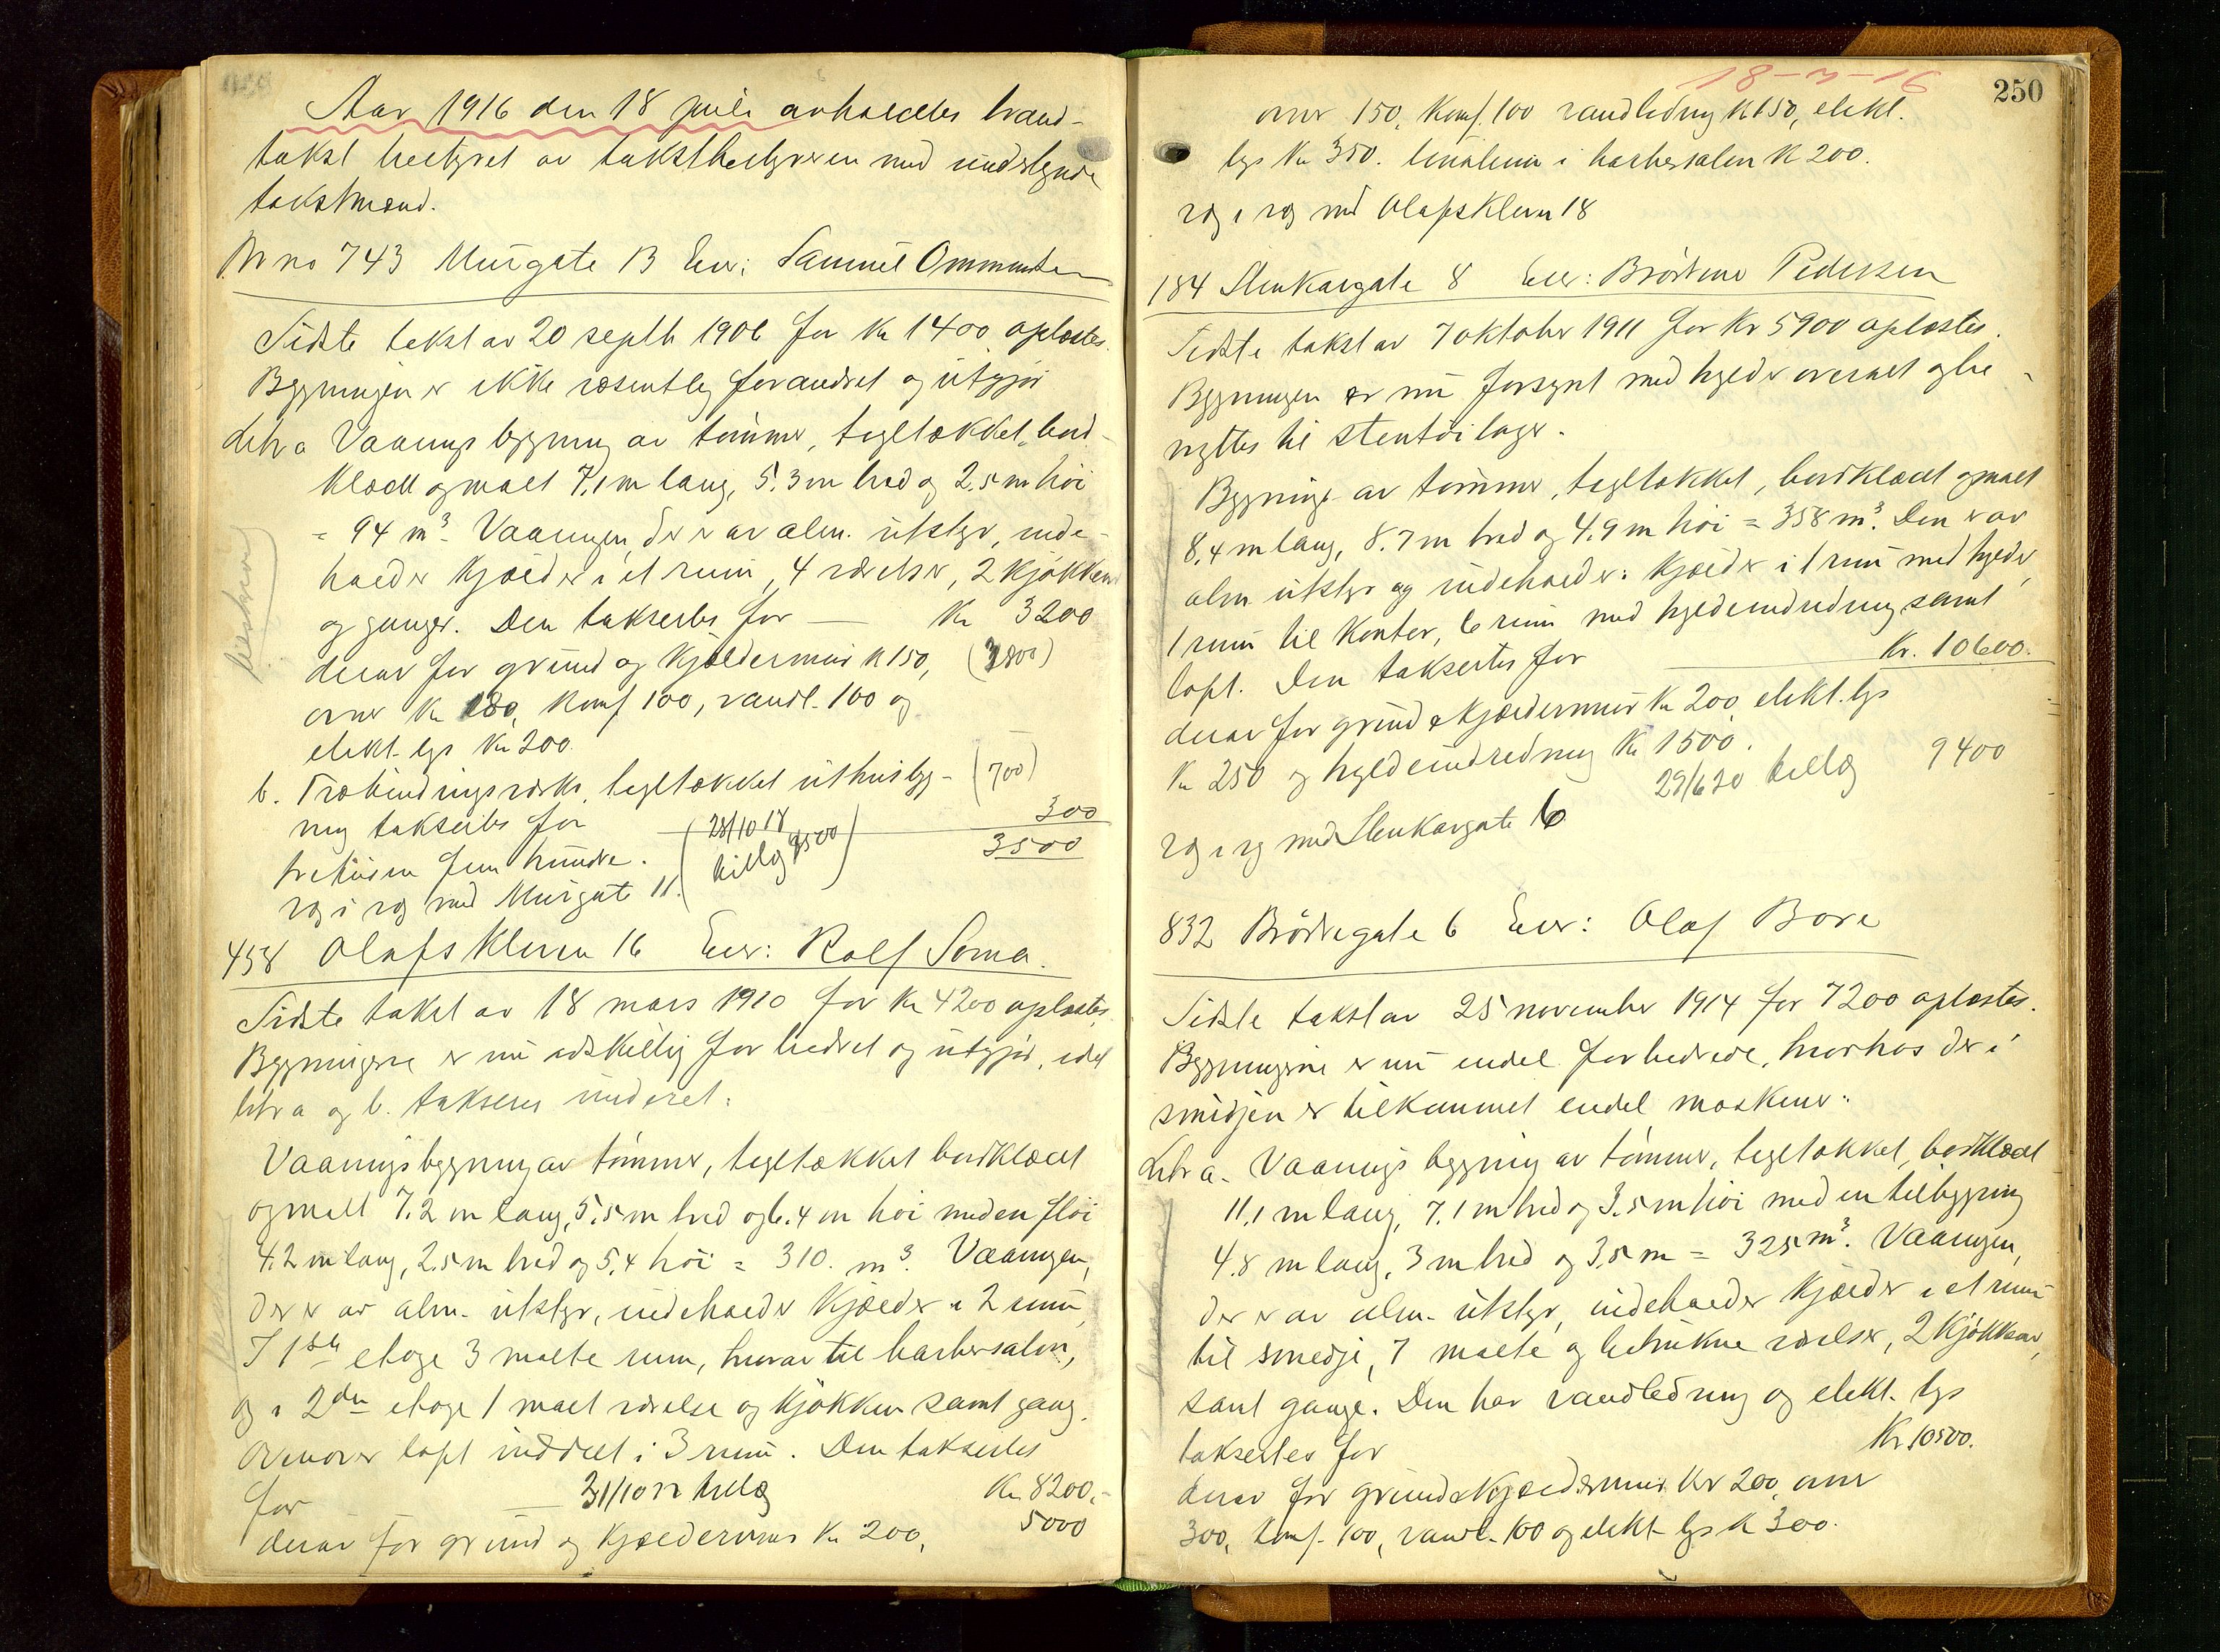 Aar 1916 den 18 juli avholdtes brand-
takst bestyret av takstbestyreren med undertegnede
takstmænd.
Br no 743 Murgate 13 Eier: Samuel Ommundsen
Sidste takst av 20 septb 1906 for Kr 1400 oplæstes.
Bygningen er ikke væsentlig forandret og utgjør
Litr a Vaaningsbygning av tømmer, tegltækket, bord-
klædt og malt 7.1 m lang, 5.3 m bred og 2.5 m høi
= 94 m³. Vaaningen, der er av alm. utstyr, inde-
holder kjælder i et rum, 4 værelser, 2 kjøkkener
og ganger. Den takseres for — Kr 3200
derav for grund og kjældermur k 150, (3800)
ovner Kr 180, komf 100, vandl. 100 og
elekt. lys Kr 200.
b. Træbindingsverks, tegltækket uthusbyg- (700)
ning takseres for 300
tretusen fem hundre. (28/10 18 tillæg 9500) 3500
væg i væg med Murgate 11.
458 Olafskleven 16 Eier: Rolf Soma.
Sidste takst av 18 mars 1910 for Kr 4200 oplæstes.
Bygningerne er nu adskillig forbedret og utgjør, idet
litr a og b. takseres underet:
Vaaningsbygning av tømmer, tegltækket bordklædt
og malt 7.2 m lang, 5.5 m bred og 6.4 m høi med en fløi
4.2 m lang, 2.5 m bred og 5.4 høi = 310. m³. Vaaningen,
der er av alm. utstyr, indeholder kjælder i 2 rum,
I 1ste etage 3 malte rum, hvorav til barbersalon,
og i 2den etage 1 malt værelse og kjøkken samt gang.
Ovenover loft inddelt i 3 rum. Den taksertes
for — 31/10 tillæg Kr 8200.-
derav for grund og kjældermur Kr 200, 5000
18-7-16
250
ovner 150, komf. 100 vandledning k 150, elekt.
lys Kr 350. linoleum i barbersalon K 200.
væg i væg med Olafskleven 18
184 Stenkargate 8 Eier: Brødrene Pedersen
Sidste takst av 7 oktober 1911 for Kr 5900 oplæstes.
Bygningen er nu forsynt med hylder overalt og be-
nyttes til stentøilager.
Bygning av tømmer, tegltækket, bordklædt og malt
8.4 m lang, 8.7 m bred og 4.9 m høi = 358 m³. Den er av
alm utstyr og indeholder: kjælder i 1 rum med hylder,
1 rum til kontor, 6 rum med hyldeindredning samt
loft. Den taksertes for Kr. 10600.
derav for grund & kjældermur Kr 200, elekt. lys
Kr 250 og hyldeindredning Kr 1500.
29/6 20 tillæg 9400
væg i væg med Stenkargate 6
832 Brødregate 6 Eier: Olaf Bore
Sidste takst av 25 november 1914 for 7200 oplæstes.
Bygningerne er nu endel forbedrede, hvorhos der i
smidjen er tilkommet endel maskiner:
Litr a. Vaaningsbygning av tømmer, tegltækket, bordklædt
11.1 m lang, 7.1 m bred og 3.5 m høi med en tilbygning
4.8 m lang, 3 m bred og 3.5 m = 325 m³. Vaaningen,
der er av alm. utstyr, indeholder kjælder i et rum
til smedje, 7 malte og betrukne værelser, 2 kjøkkener,
samt gange. Den har vandledning og elekt. lys
taksertes for Kr. 10500.
derav for grund & kjældermur Kr 200, ovner
300, komf. 100, vandl. 100 og elekt. lys k 300.